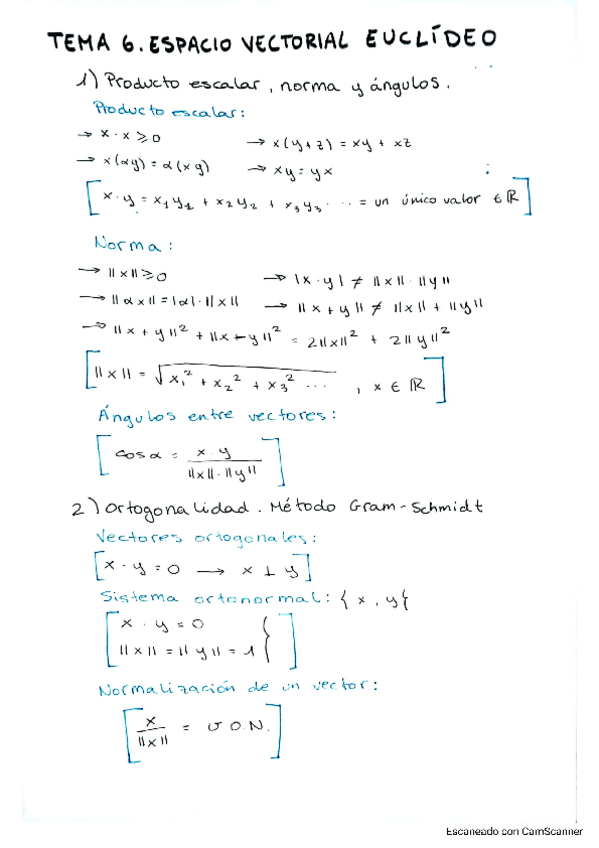 TEMA 6. ESPACIO VECTORIAL EUCLÍDEO
1) Producto escalar, norma y ángulos.
Producto escalar:
→ x · x ≥ 0 → x(y+z) = xy + xz
→ x(αy) = α(xy) → xy = yx
[x · y = x₁y₁ + x₂y₂ + x₃y₃ ... = un único valor ∈ ℝ]
Norma:
→ ||x|| ≥ 0 → |x · y| ≠ ||x|| · ||y||
→ ||αx|| = |α| · ||x|| → ||x + y|| ≠ ||x|| + ||y||
→ ||x + y||² + ||x - y||² = 2||x||² + 2||y||²
[||x|| = √x₁² + x₂² + x₃² ... , x ∈ ℝ]
Ángulos entre vectores:
[cos α = x · y / ||x|| · ||y||]
2) Ortogonalidad. Método Gram-Schmidt
Vectores ortogonales:
[x · y = 0 → x ⊥ y]
Sistema ortonormal: {x, y}
[x · y = 0
||x|| = ||y|| = 1}]
Normalización de un vector:
[x / ||x|| = v O.N.]
Escaneado con CamScanner